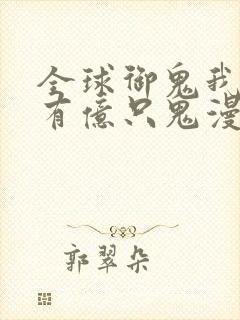 全球御鬼我
有億只鬼漫
郭翠朵